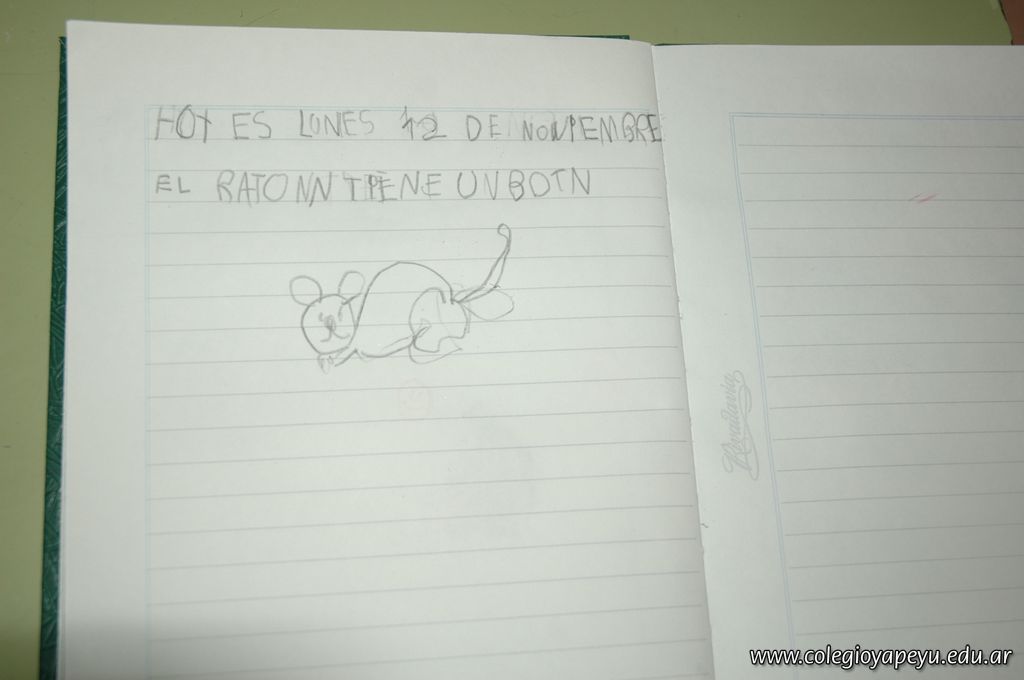 HOY ES LUNES 12 DE NONPEMBRE
EL RATONN TPENE UN BOTN
Rivadavia
www.colegioyapeyu.edu.ar